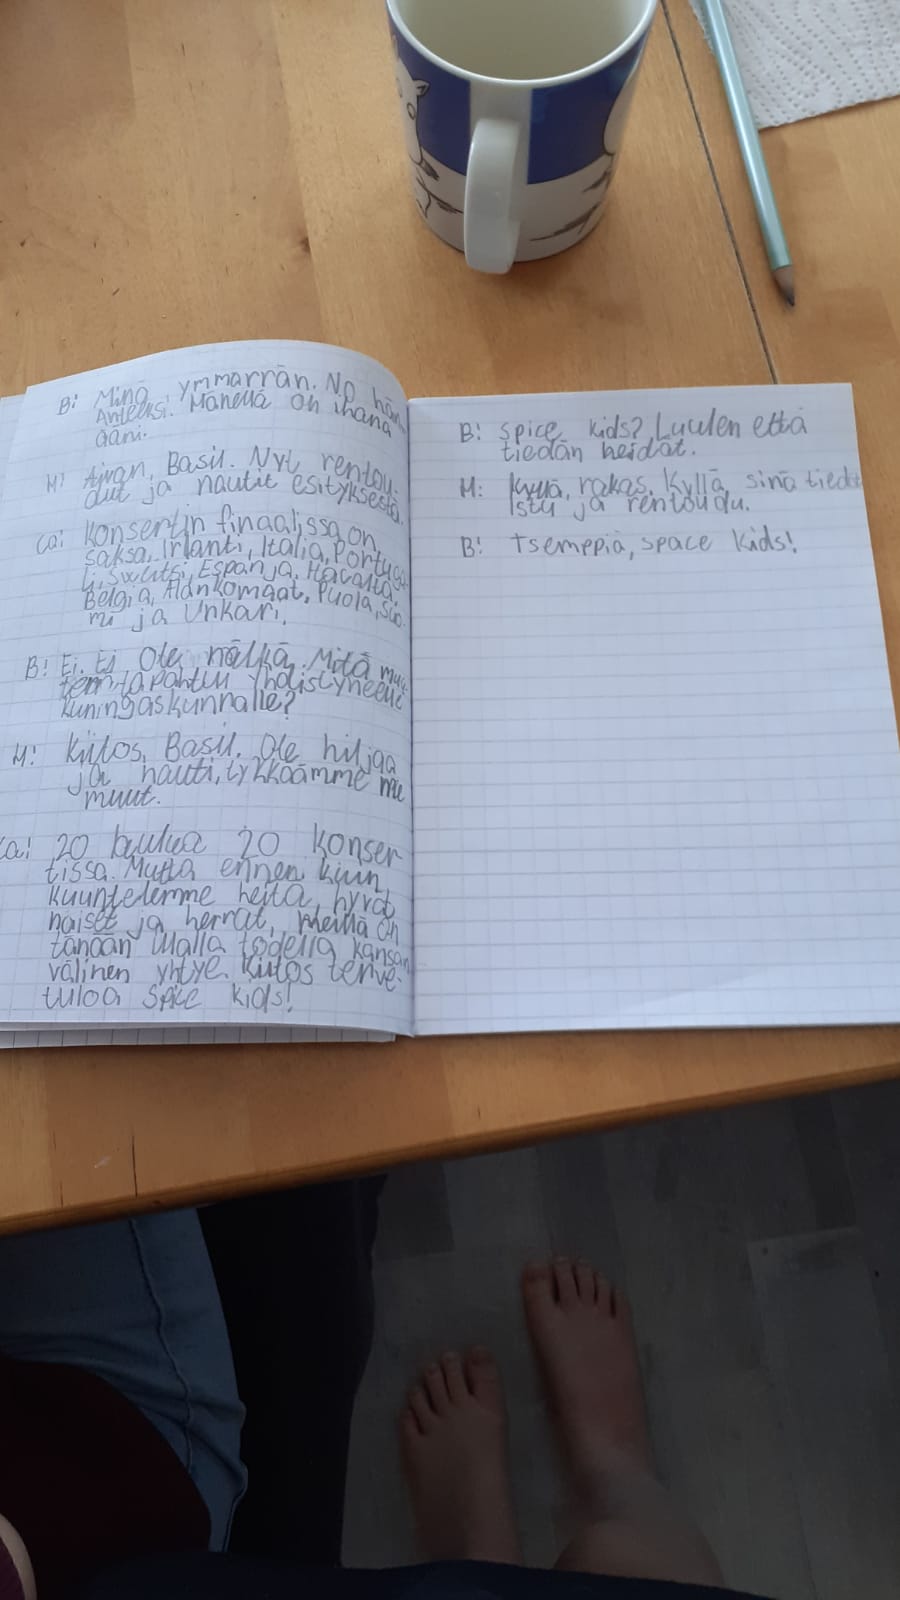 B: Minä ymmärrän. No hän
Anteeksi. Hänellä on ihana
ääni.
M: Aivan, Basil. Nyt rentou-
dut ja nautit esityksestä.
Ca: Konsertin finaalissa on
saksa, Irlanti, Italia, Portuga-
li, Sveitsi, Espanja,
Belgia, Alankomaat, Puola, suo-
mi ja Unkari.
B: Ei. Ei Ole nälkä. Mitä
tapahtuu Yhdistyneelle
kuningaskunnalle?
M: Kiitos, Basil. Ole hiljaa
ja nauti, tykkäämme me
muut.
Ca: 20 laulua 20 konser
tissa. Mutta ennen kuin
kuuntelemme heitä, hyvät
naiset ja herrat, meillä on
tänään illalla todella kansan
välinen yhtye. Kiitos terve-
tuloa Spice kids!
B: Spice kids? Luulen että
tiedän heidät.
M: Kyllä, rakas. Kyllä, sinä tiedät
Istu ja rentoudu.
B: Tsemppiä, space kids!